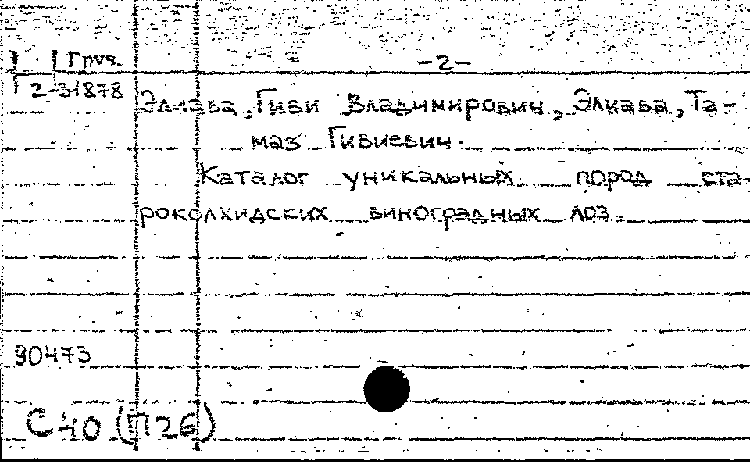 Груз. -2-
2-31878
Элиава, Гиви Владимирович, Элиава, Та-
маз Гивиевич.
Каталог уникальных пород ста-
роколхидских виноградных лоз.
90473
С40 (П26)